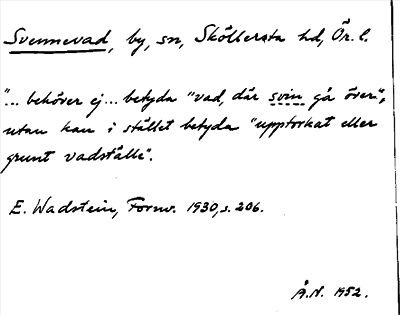 Svennevad, by, sn, Sköllersta hd, Ör. l.
"... behöver ej... betyda "vad, där svin gå över",
utan kan i stället betyda "upptorkat eller
grunt vadställe".
E. Wadstein, Fornv. 1930, s. 206.
Å.N. 1952.